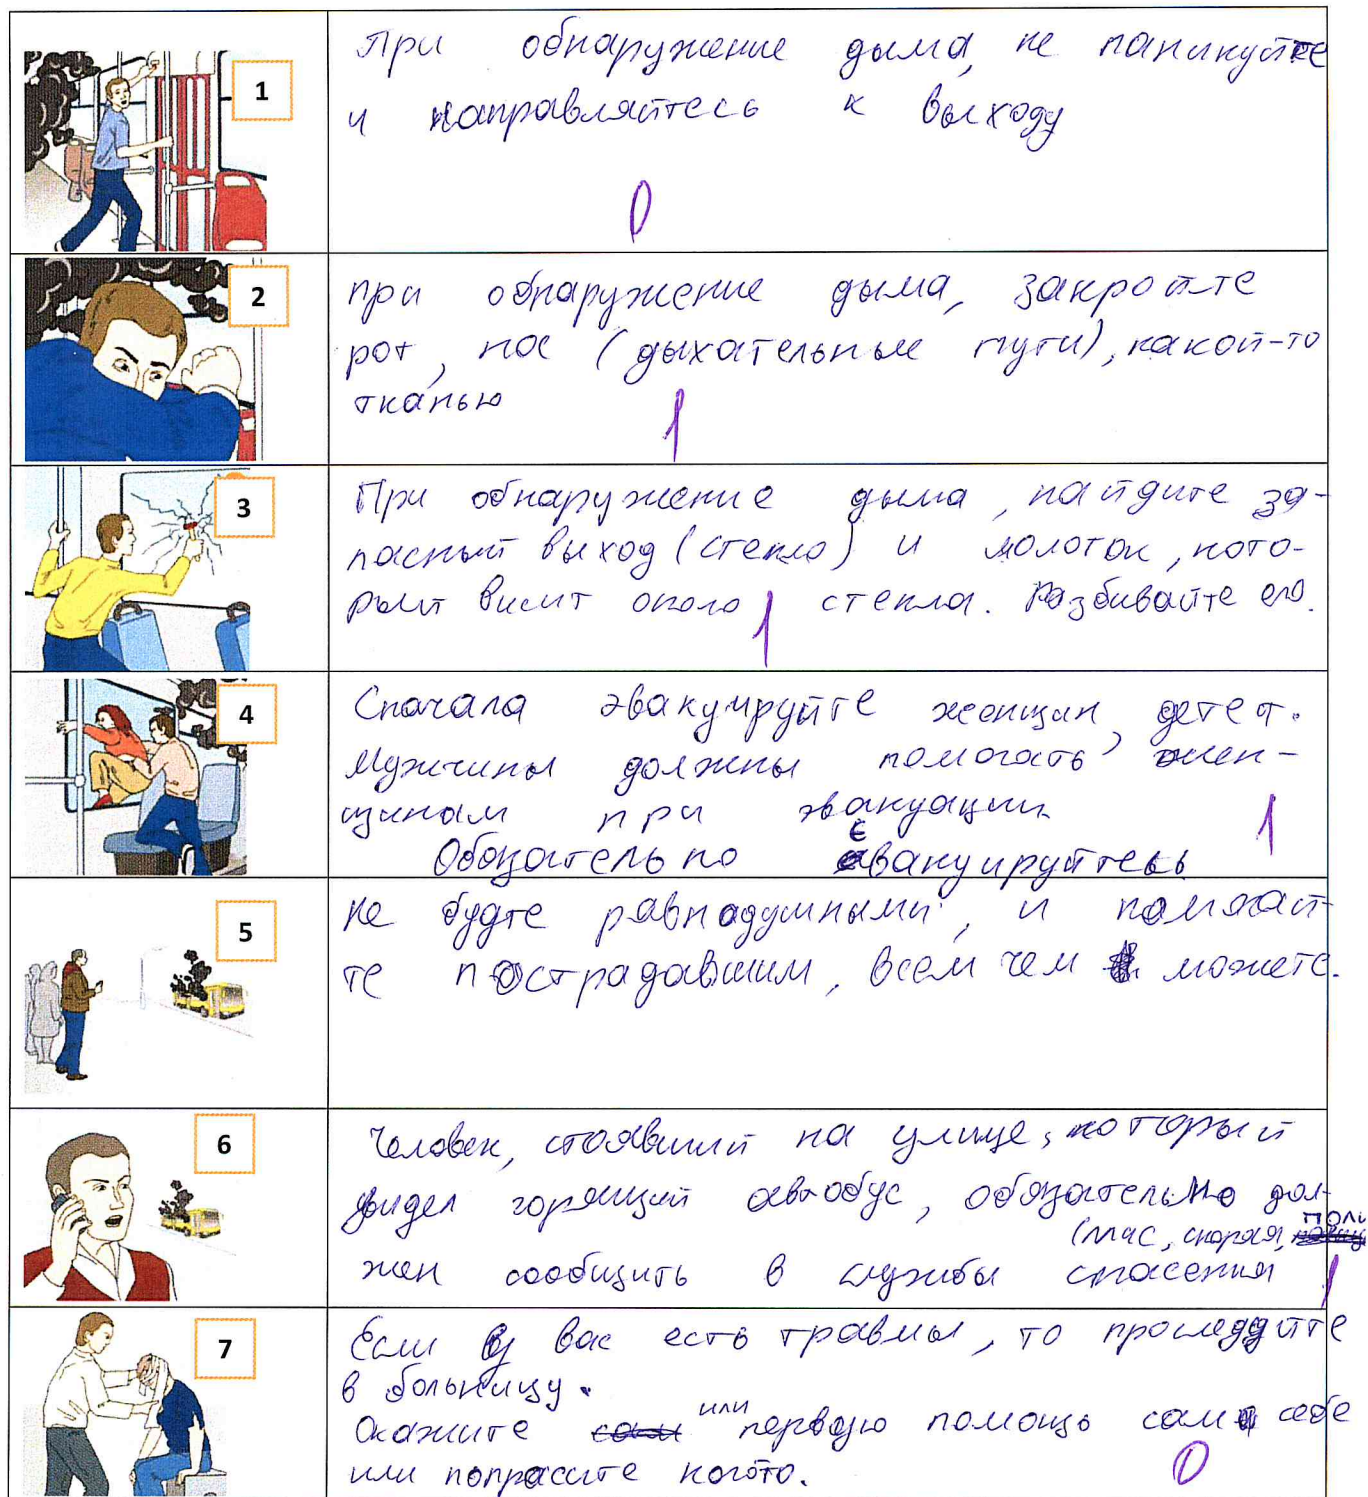 1
При обнаружение дыма, не паникуйте
и направляйтесь к выходу
0
2
при обнаружение дыма, закройте
рот, нос (дыхательные пути), какой-то
тканью
1
3
При обнаружение дыма, найдите за-
пасный выход (стекло) и молоток, кото-
рый висит около стекла. Разбивайте его.
1
4
Сначала эвакуируйте женщин, детей.
Мужчины должны помогать жен-
щинам при эвакуации.
1
Обязательно евакуируйтесь
5
не будте равнадушными, и помагай-
те пострадавшим, всем чем можете.
6
Человек, стоявший на улице, который
видел горящий автобус, обязательно дол-
(мчс, скорая, поли
жен сообщить в службы спасения
1
7
Если у вас есть травмы, то проследуйте
в больницу.
или
Окажите первую помощь сам себе
или попрасите когото.
0